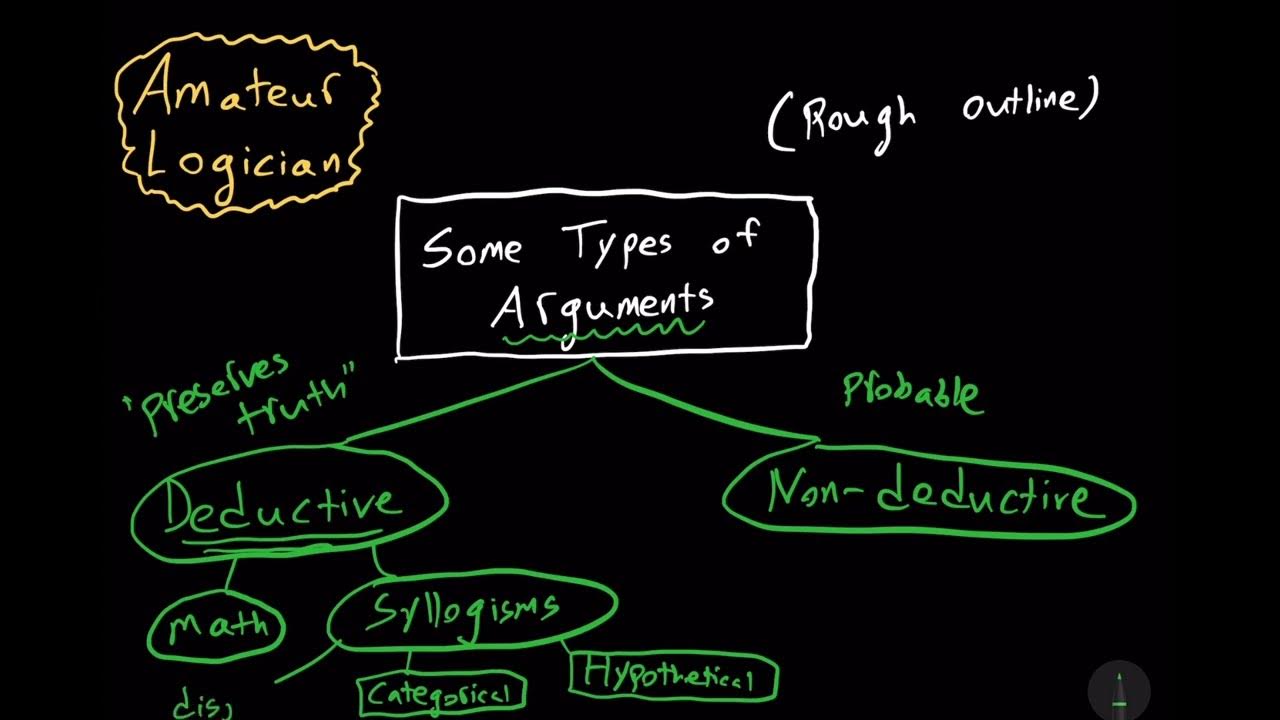 Amateur
Logician
(Rough outline)
Some Types of
Arguments
"preserves
truth"
Probable
Deductive
Non-deductive
Math
Syllogisms
Categorical
Hypothetical
dis,